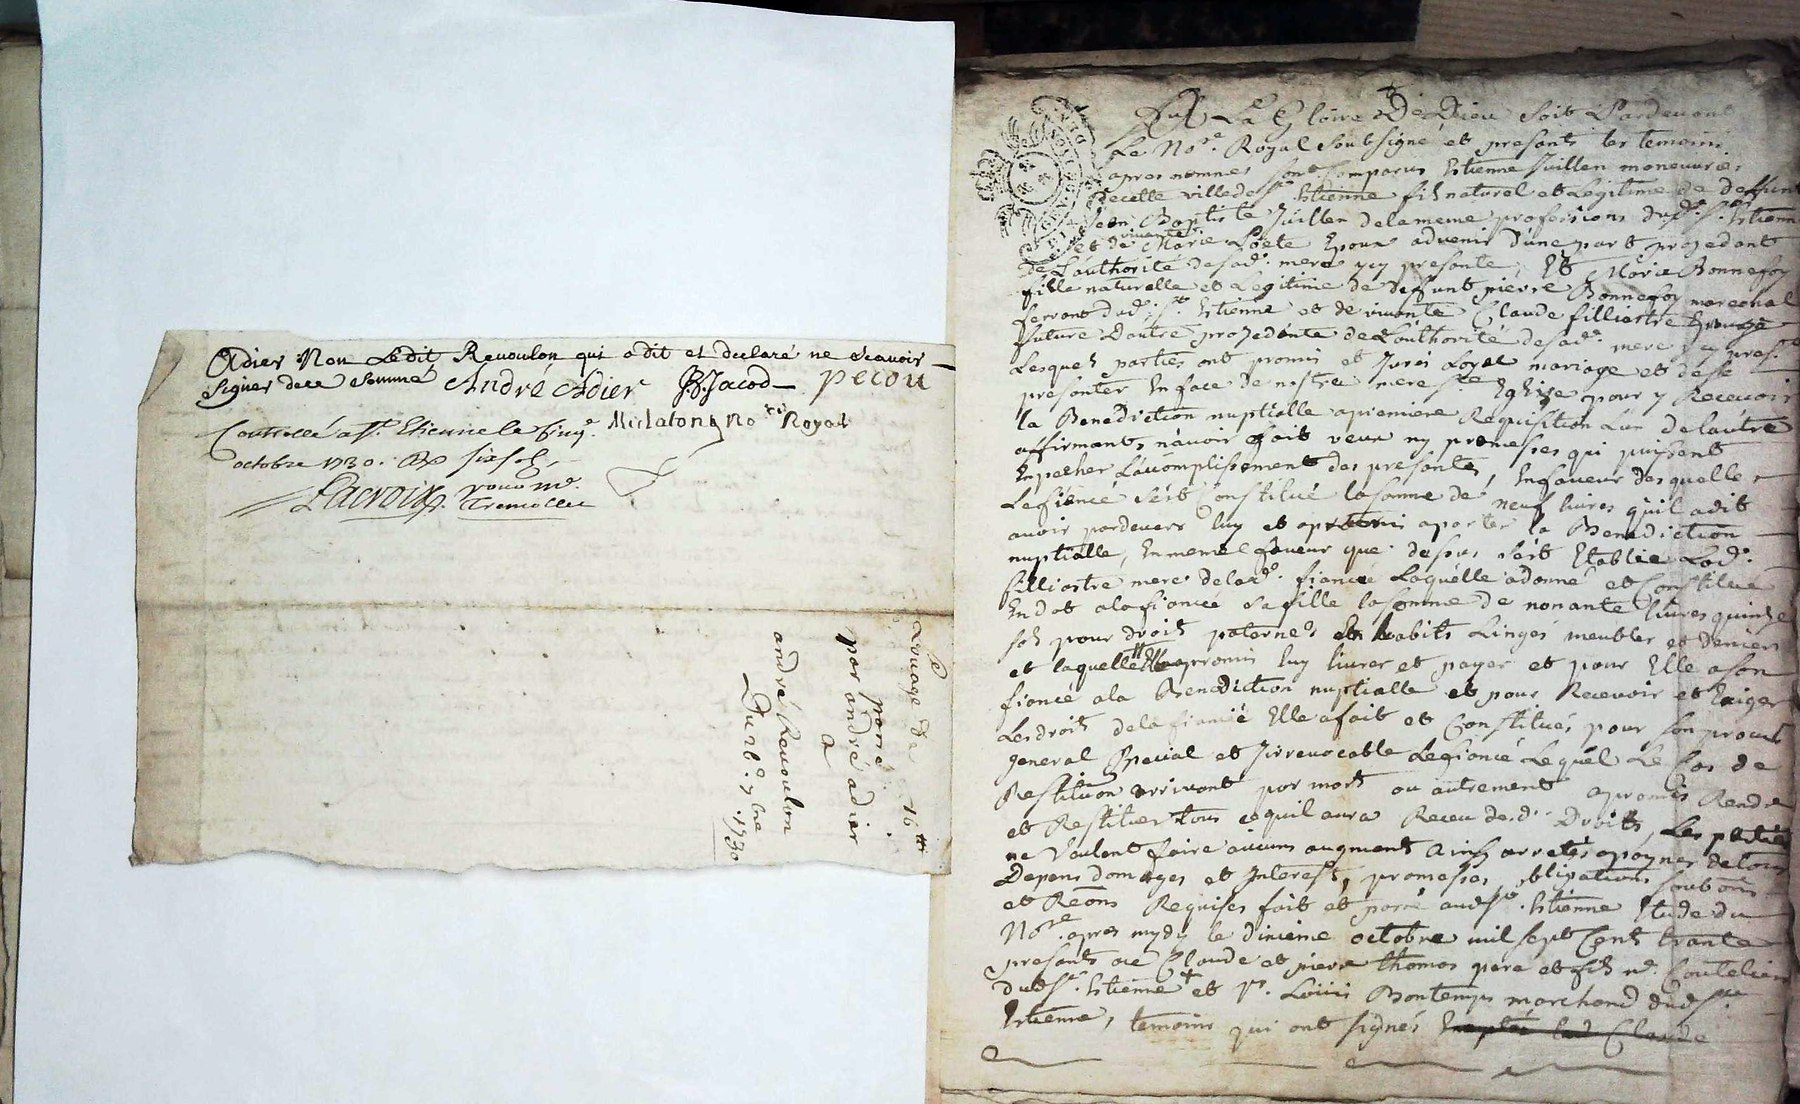 Adier Non Ledit Revoulon qui a dit et declaré ne scavoir
signer de ce sommé André Adier JB Jacod pecou
Controllé a St. Etienne le
octobre 1730. six sols
Lacroix
No.re Royal
Louage de 16 tt
passé
par andré adier
a
andré Revoulon
Du 7bre 1730
A La Gloire De Dieu soit Pardevant
Le No.re Royal soubsigné et presants les temoins
apres nommes sont comparus Estienne Juillen maneuvre
decelle ville de St. Estienne fils naturel et Legitime de deffunt
Jean Baptiste Juillen de la meme professions dud. St. Estienne
et de vivante Marie Poete Epoux advenir d'une part projedant
de L'authorité de sad. mere icy presante, Et Marie Bonnefoy
fille naturelle et Legitime de defunt pierre Bonnefoy marechal
ferrant dud. St. Estienne et de vivante Claude filliastre
future D'autre projedante de L'authorité de sad. mere icy pres.te
Lesquels parties ont promis et Juré Loyal mariage et de se
presenter En face de nostre mere ste Eglise pour y Recevoir
la Benediction nuptialle a premiere Requisition L'un de lautre
affirmants n'avoir fait veux ny promesses qui puissent
Enpecher L'accomplissement des presantes, En faveur desquelles
Le fiancé s'est Constitué la somme de neuf livres qu'il a dit
avoir pardevers luy et aporter la Benediction
nuptialle, En meme faveur que dessus s'est Etablie Lad.
filliastre mere de lad. fiancée Laquelle a donné et Constitué
En dot a la fiancée sa fille la somme de nonante livres quinze
sols pour droits paternels En habits Linges meubles et deniers
et laquelle a promis luy livrer et payer et pour Elle a son
fiancé a la Benediction nuptialle et pour Recevoir et Exiger
Les droits de la fiancée Elle a fait et Constitués pour son procur
general Special et Irrevocable Le fiancé Lequel Le Cas de
Restitution arrivant par mort ou autrement a promis Rendre
et Restituer tous ce quil aura Receu desd. Droits, Les parties
ne Voulant faire aucun augment ainsy arretés a paynes de tous
Depens domages et Interest, promesses obligations soubmis
et Reons Requises fait et passé aud St. Estienne Etude du
No.re apres mydy le dixieme octobre mil sept Cent trante
presants Claude et piere thomas pere et fils Coutelier
dud St. Estienne et Sr. Louis Bontemps marchand dud St.
Estienne, temoins qui ont signés